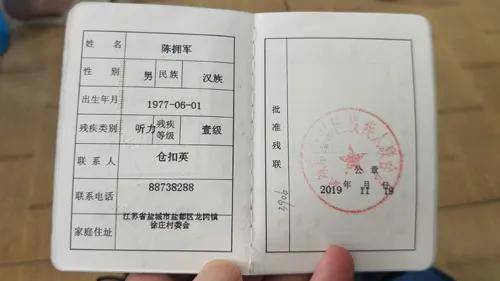 姓名 陈拥军
性别 男 民族 汉族
出生年月 1977-06-01
残疾类别 听力 残疾等级 壹级
联系人 仓扣英
联系电话 88738288
家庭住址 江苏省盐城市盐都区龙冈镇
徐庄村委会
批准残联
公章
2019年11月19
3906